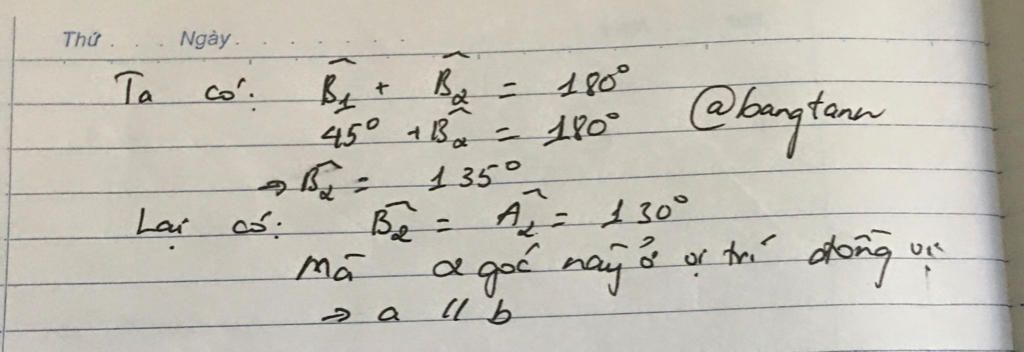 Thứ . . . Ngày . . . . . . .
Ta có: B̂1 + B̂2 = 180°
45° + B̂2 = 180° @bangtann
→ B̂2 = 135°
Lại có: B̂2 = Â2 = 130°
Mà 2 góc này ở vị trí đồng vị
→ a // b